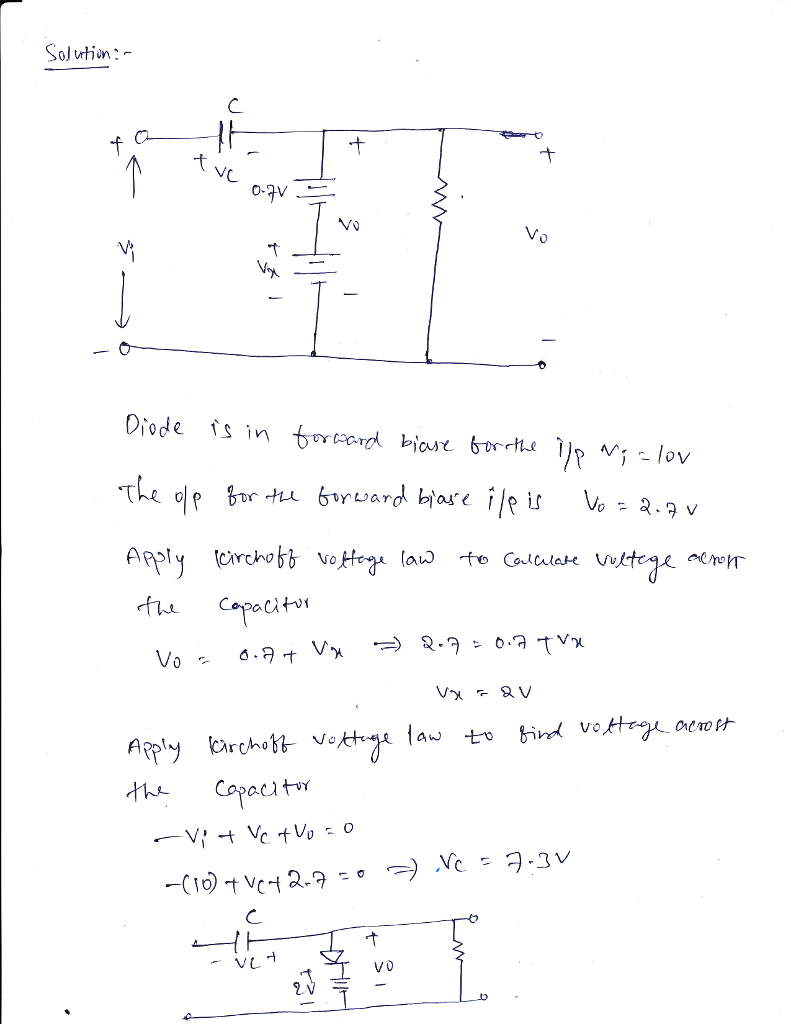 Solution:-
C
+
+ VC -
+
+
0.7V
Vo
Vo
Vi
+
Vx
-
-
-
-
Diode is in forward biase for the i/p Vi = 10V
The o/p for the forward biase i/p is Vo = 2.7 V
Apply Kirchoff voltage law to Calculate voltage across
the Capacitor
Vo = 0.7 + Vx ⇒ 2.7 = 0.7 + Vx
Vx = 2V
Apply Kirchoff voltage law to find voltage across
the Capacitor
-Vi + Vc + Vo = 0
-(10) + Vc + 2.7 = 0 ⇒ Vc = 7.3V
C
- VC +
+
Vo
-
+
2V
-